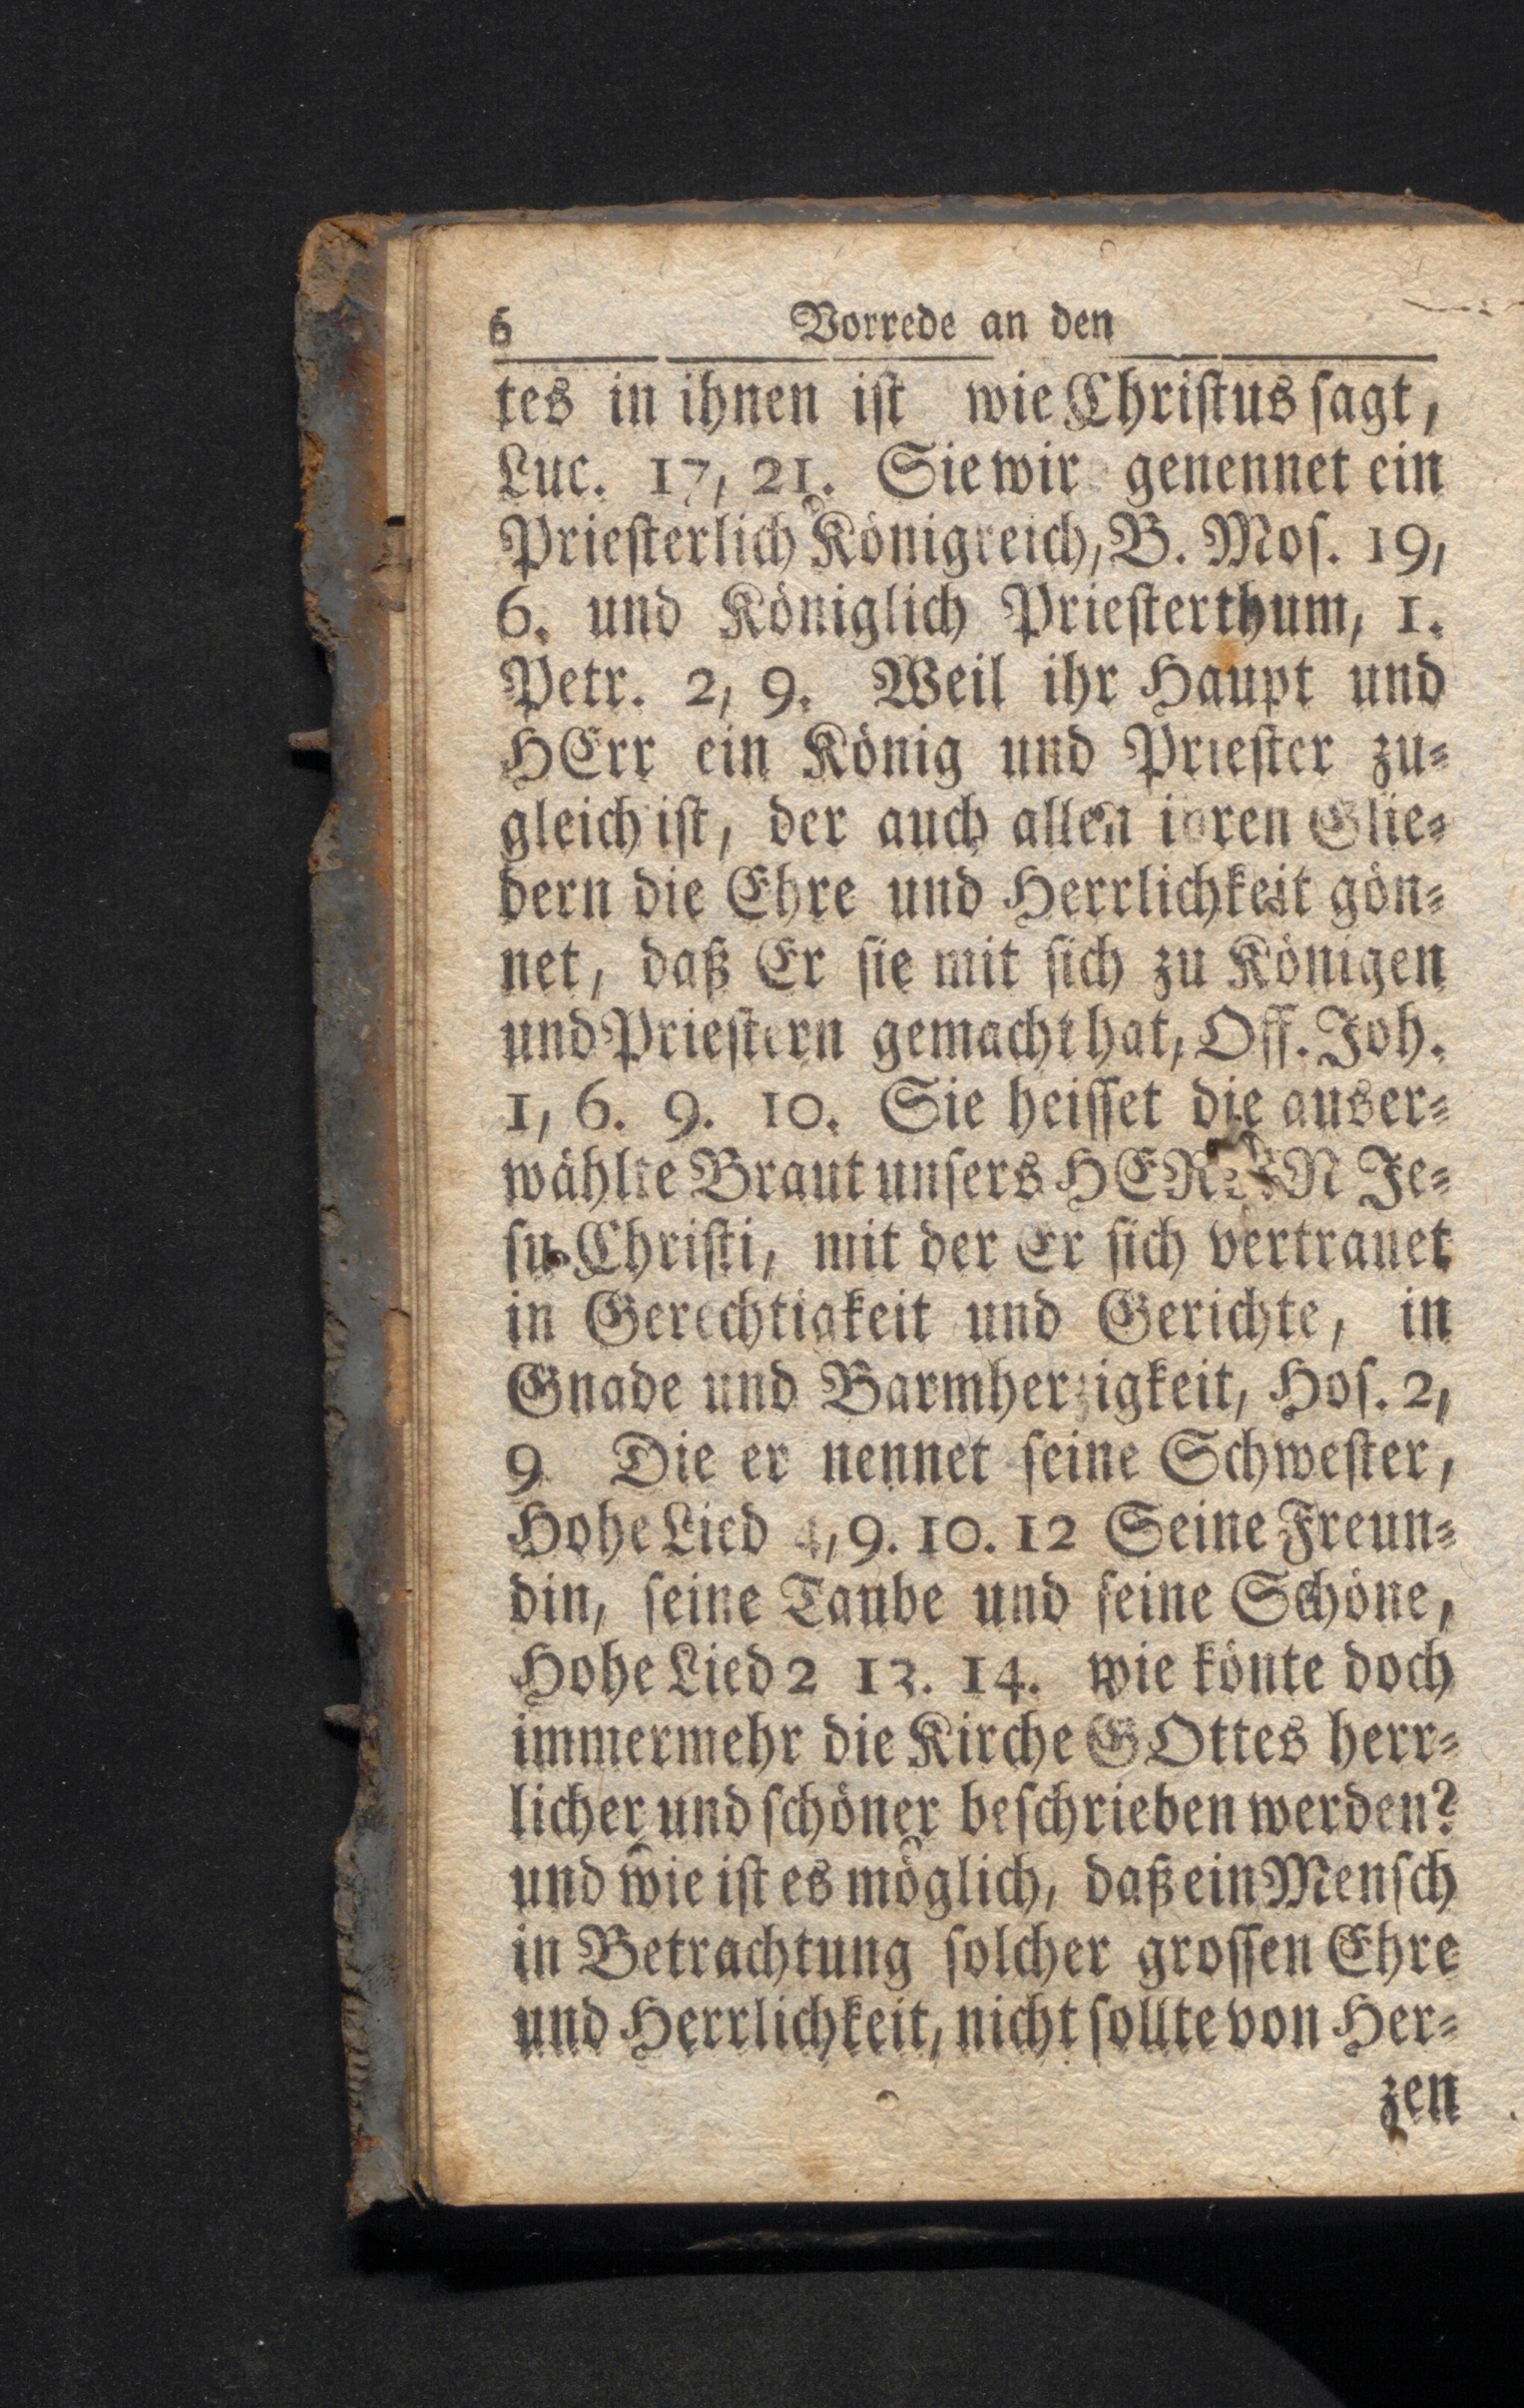 6 Vorrede an den
tes in ihnen ist wie Christus sagt,
Luc. 17, 21. Sie wir genennet ein
Priesterlich Königreich, B. Mos. 19,
6. und Königlich Priesterthum, 1.
Petr. 2, 9. Weil ihr Haupt und
HErr ein König und Priester zu=
gleich ist, der auch allen ihren Glie=
dern die Ehre und Herrlichkeit gön=
net, daß Er sie mit sich zu Königen
und Priestern gemacht hat, Off. Joh.
1, 6. 9. 10. Sie heisset die auser=
wählte Braut unsers HERREN Je=
su Christi, mit der Er sich vertrauet
in Gerechtigkeit und Gerichte, in
Gnade und Barmherzigkeit, Hos. 2,
9 Die er nennet seine Schwester,
Hohe Lied 4, 9. 10. 12 Seine Freun=
din, seine Taube und seine Schöne,
Hohe Lied 2 13. 14. wie könte doch
immermehr die Kirche GOttes herr=
licher und schöner beschrieben werden?
und wie ist es möglich, daß ein Mensch
in Betrachtung solcher grossen Ehre
und Herrlichkeit, nicht sollte von Her=
zen